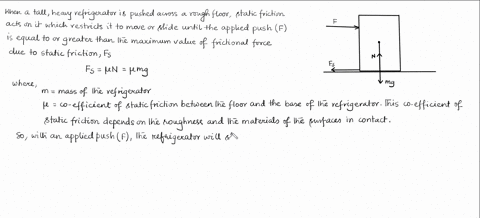 When a tall, heavy refrigerator is pushed across a rough floor, static friction
acts on it which restricts it to move or slide until the applied push (F)
is equal to or greater than the maximum value of frictional force
due to static friction, Fs
Fs = μN = μmg
where,
m = mass of the refrigerator
μ = co-efficient of static friction between the floor and the base of the refrigerator. This co-efficient of
static friction depends on the roughness and the materials of the surfaces in contact.
So, with an applied push (F), the refrigerator will
F
N
Fs
mg